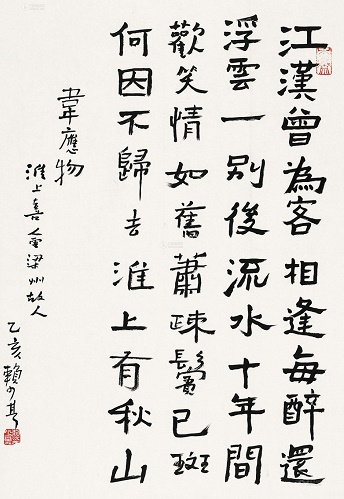 江漢曾為客相逢每醉還
浮雲一別後流水十年間
歡笑情如舊蕭疎鬢已斑
何因不歸去淮上有秋山
韋應物
淮上喜會梁州故人
乙亥賴少其